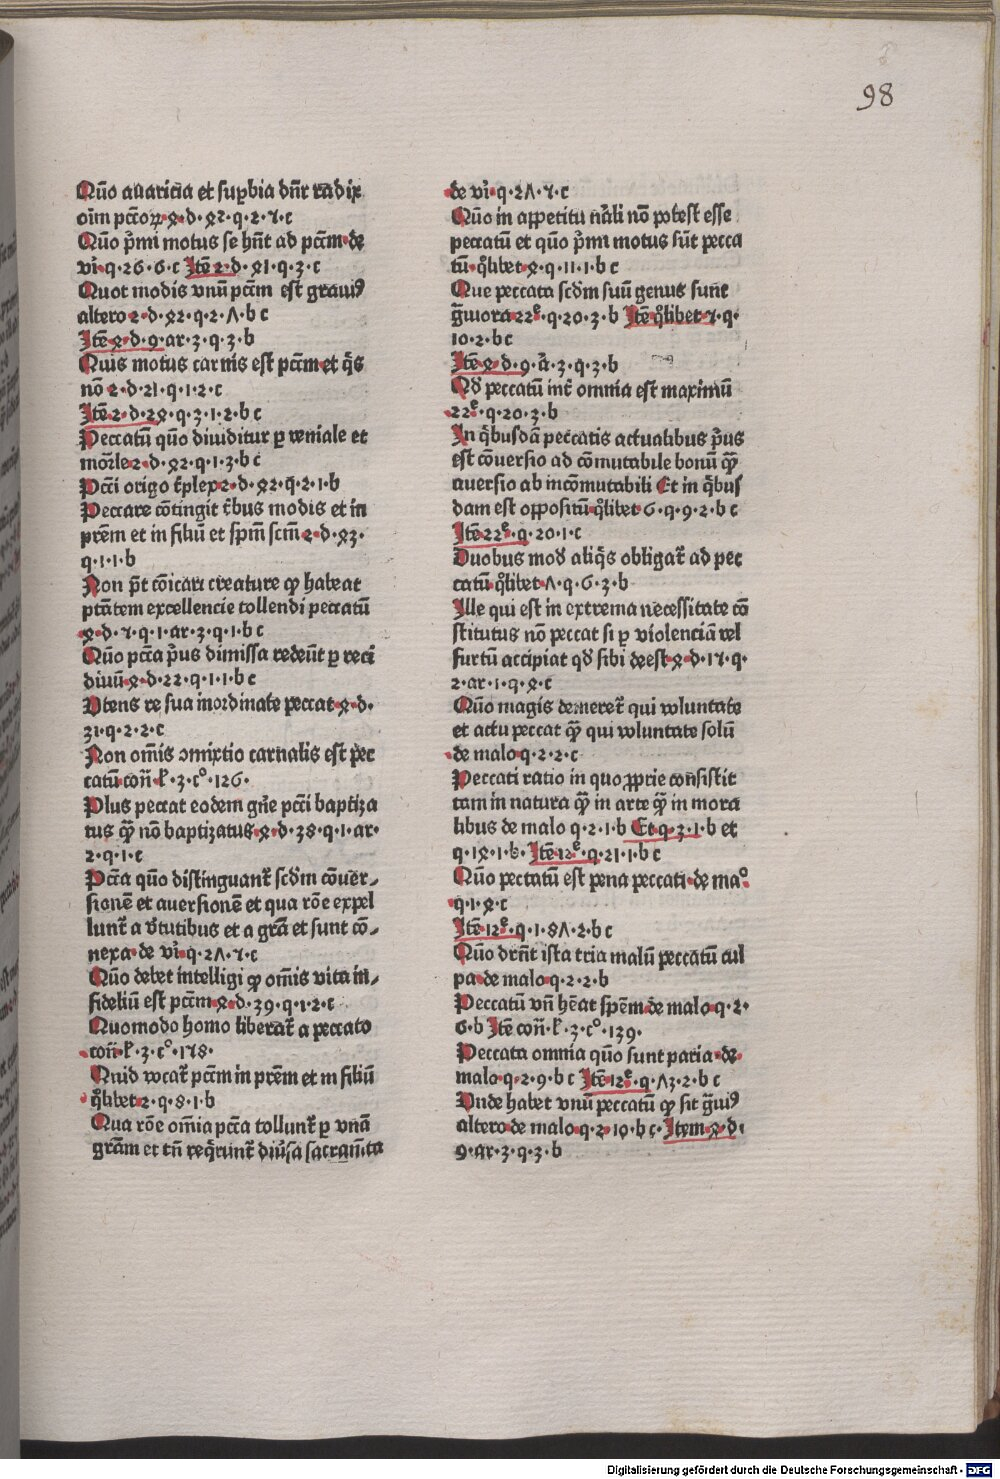 98
Quō auaricia et suꝑbia dn̄r radix
oīm pcc̄oꝝ·4·d·42·q·2·7·c
Quō p̄mi motus se hn̄t ad pcc̄m·de
vi̇·q·26·6·c Itē 2·d·41·q·3·c
Quot modis vnū pcc̄m est graui⁹
altero 2·d·42·q·2·Λ·b c
Itē 4·d·9·ar·3·q·3·b
Quis motus carnis est pcc̄m et q̄s
nō 2·d·21·q·1·2·c
Itē 2·d·24·q·3·1·2·b c
Peccatū quō diuiditur ꝑ veniale et
mor̄le 2·d·42·q·1·3·b c
Pcc̄i origo t̄plex 2·d·42·q·2·1·b
Peccare cōtingit t̄bus modis et in
prēm et in filiū et spm̄ scm̄ 2·d·43·
q·1·1·b
Non pt̄ cōicari creature ꝙ habeat
ptātem excellencie tollendi peccatū
4·d·7·q·1·ar·3·q·1·b c
Quō pcc̄a p̄us dimissa redeūt ꝑ reci
diuū 4·d·22·q·1·1·b c
Vtens re sua inordinate peccat 4·d·
31·q·2·2·c
Non om̄is ↄmixtio carnalis est pec
catū con̄·l̄·3·c°·126·
Plus peccat eodem gn̄e pcc̄i baptiza
tus ꝙ̄ nō baptizatus 4·d·38·q·1·ar·
2·q·1·c
Pcc̄a quō distinguant᷑ scd̄m cōuer⸗
sionē et auersionē et qua rōe expel
lunt᷑ a v̄tutibus et a gr̄a et sunt cō⸗
nexa·de vi̇·q·2Λ·7·c
Quō debet intelligi ꝙ om̄is vita in⸗
fideliū est pcc̄m 4·d·39·q·1·2·c
Quomodo homo liberat᷑ a peccato
con̄·l̄·3·c°·178·
Quid vocat᷑ pcc̄m in prēm et in filiū
q̊libet 2·q·8·1·b
Qua rōe om̄ia pcc̄a tollunt᷑ ꝑ vnā
gr̄am et tn̄ req̄runt᷑ diūsa sacram̄ta
de vi̇·q·2Λ·7·c
Quō in appetitu nāli nō potest esse
peccatū et quō p̄mi motus sūt pecca
tū·q̊libet 4·q·11·1·b c
Que peccata scd̄m suū genus sunt
ḡuiora 22ᵉ·q·20·3·b Itē q̊libet 7·q·
10·2·b c
Itē 4·d·9·ā·3·q·3·b
Qd̄ peccatū int᷑ omnia est maximū
22ᵉ·q·20·3·b
In q̄busdā peccatis actualibus p̄us
est cōuersio ad cōmutabile bonū ꝙ̄
auersio ab incōmutabili Et in q̄bus
dam est oppositū q̊libet 6·q·9·2·b c
Itē 22ᵉ·q·20·1·c
Duobus mod̄ aliq̄s obligat᷑ ad pec
catū q̊libet Λ·q·6·3·b
Ille qui est in extrema necessitate cō
stitutus nō peccat si ꝑ violenciā vel
furtū accipiat qd̄ sibi deest 4·d·17·q·
2·ar·1·q·4·c
Quō magis demeret᷑ qui voluntate
et actu peccat ꝙ̄ qui voluntate solū
de malo q·2·2·c
Peccati ratio in quo ꝓprie consistit
tam in natura ꝙ̄ in arte ꝙ̄ in mora
libus de malo q·2·1·b Et q·3·1·b et
q·14·1·b· Itē 12ᵉ·q·21·1·b c
Quō peccatū est pena peccati·de ma°
q·1·4·c
Itē 12ᵉ·q·1·8Λ·2·b c
Quō dr̄nt ista tria malū peccatū cul
pa·de malo q·2·2·b
Peccatū vn̄ hēat spēm de malo q·2·
6·b Itē con̄·l̄·3·c°·139·
Peccata omnia quō sunt paria·de
malo q·2·9·b c Itē 12ᵉ·q·Λ3·2·b c
Vnde habet vnū peccatū ꝙ sit ḡui⁹
altero de malo q·2·10·b c·Item 4·d·
9·ar·3·q·3·b
Digitalisierung gefördert durch die Deutsche Forschungsgemeinschaft - DFG